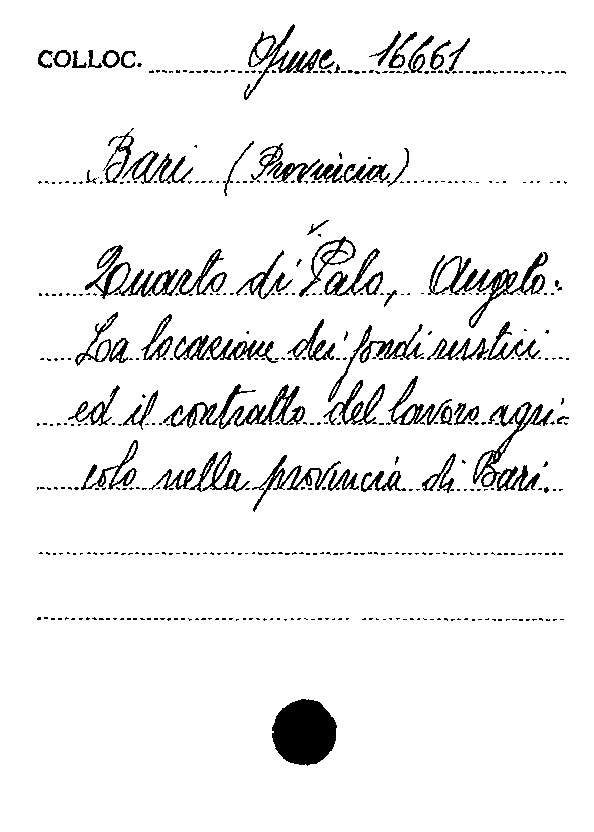 COLLOC. Opusc. 16661
Bari (Provincia)
Quarto di Palo, Angelo.
La locazione dei fondi rustici
ed il contratto del lavoro agri-
colo nella provincia di Bari.